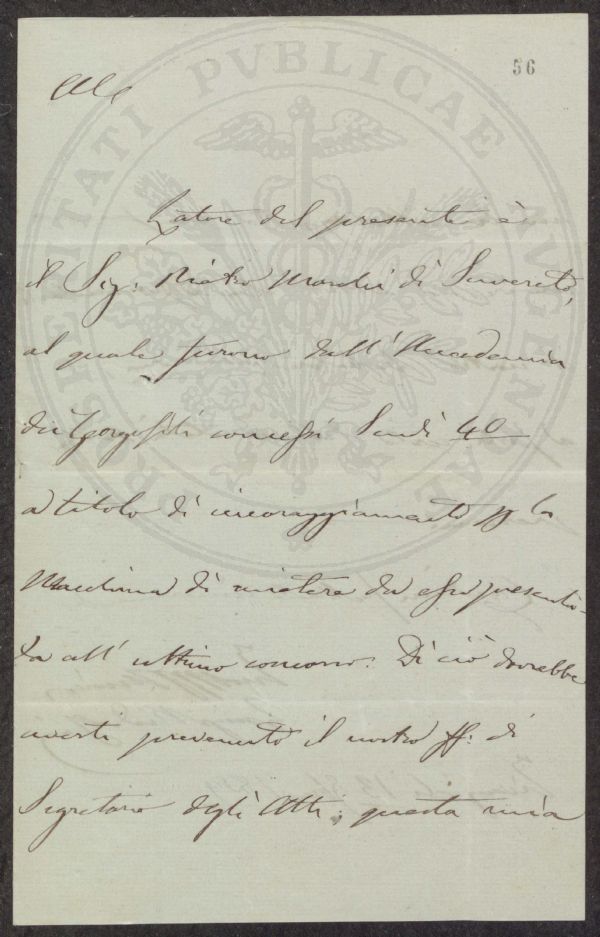 56
Latore del presente è
il Sig: Pietro Marchi di Suvereto,
al quale furono dall'Accademia
dei Georgofili concessi Scudi 40
a titolo di incoraggiamento p la
Macchina di mietere da esso presenta-
ta all'ultimo concorso. Di ciò dovrebbe
averti prevenuto il nostro ff: di
Segretario degli Atti; questa mia
PROSPERITATI PVBLICAE AVGENDAE